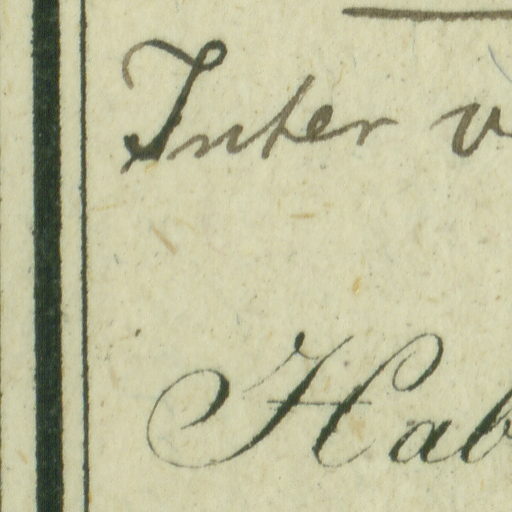 Inter v
Hab